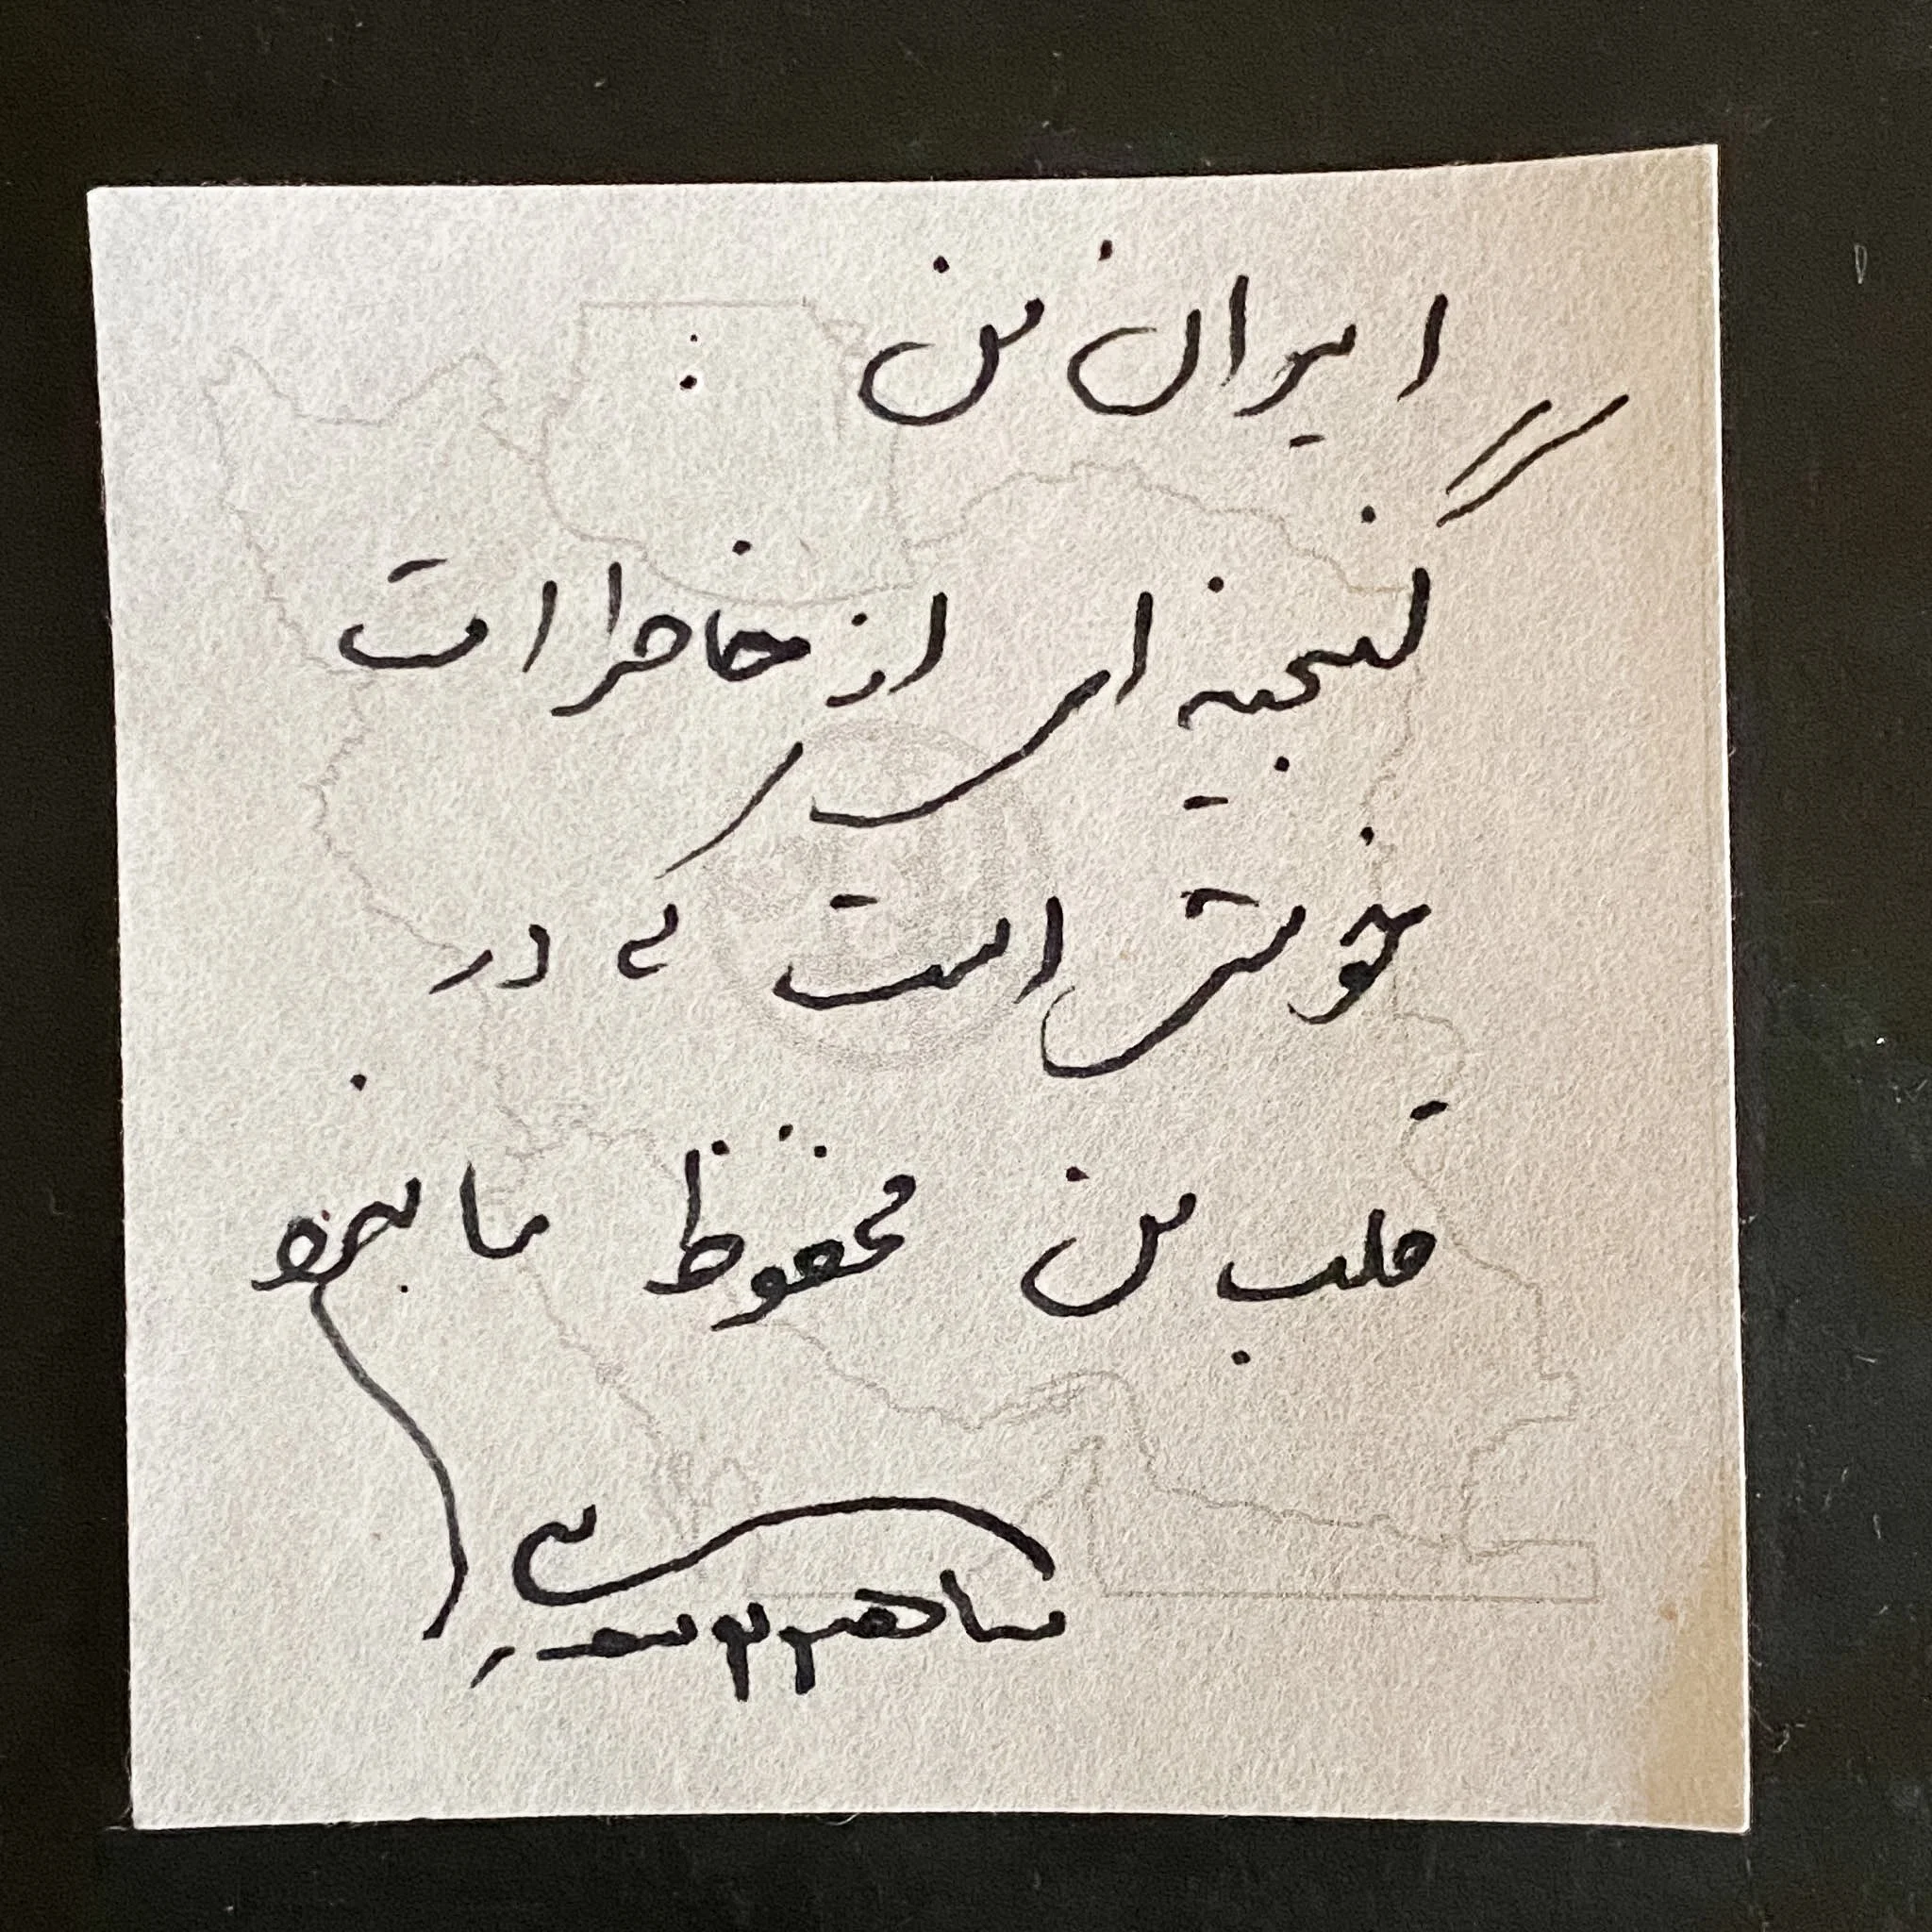 ایران من :
گنجینه ای از خاطرات
خویش است که در
قلب من محفوظ مانده